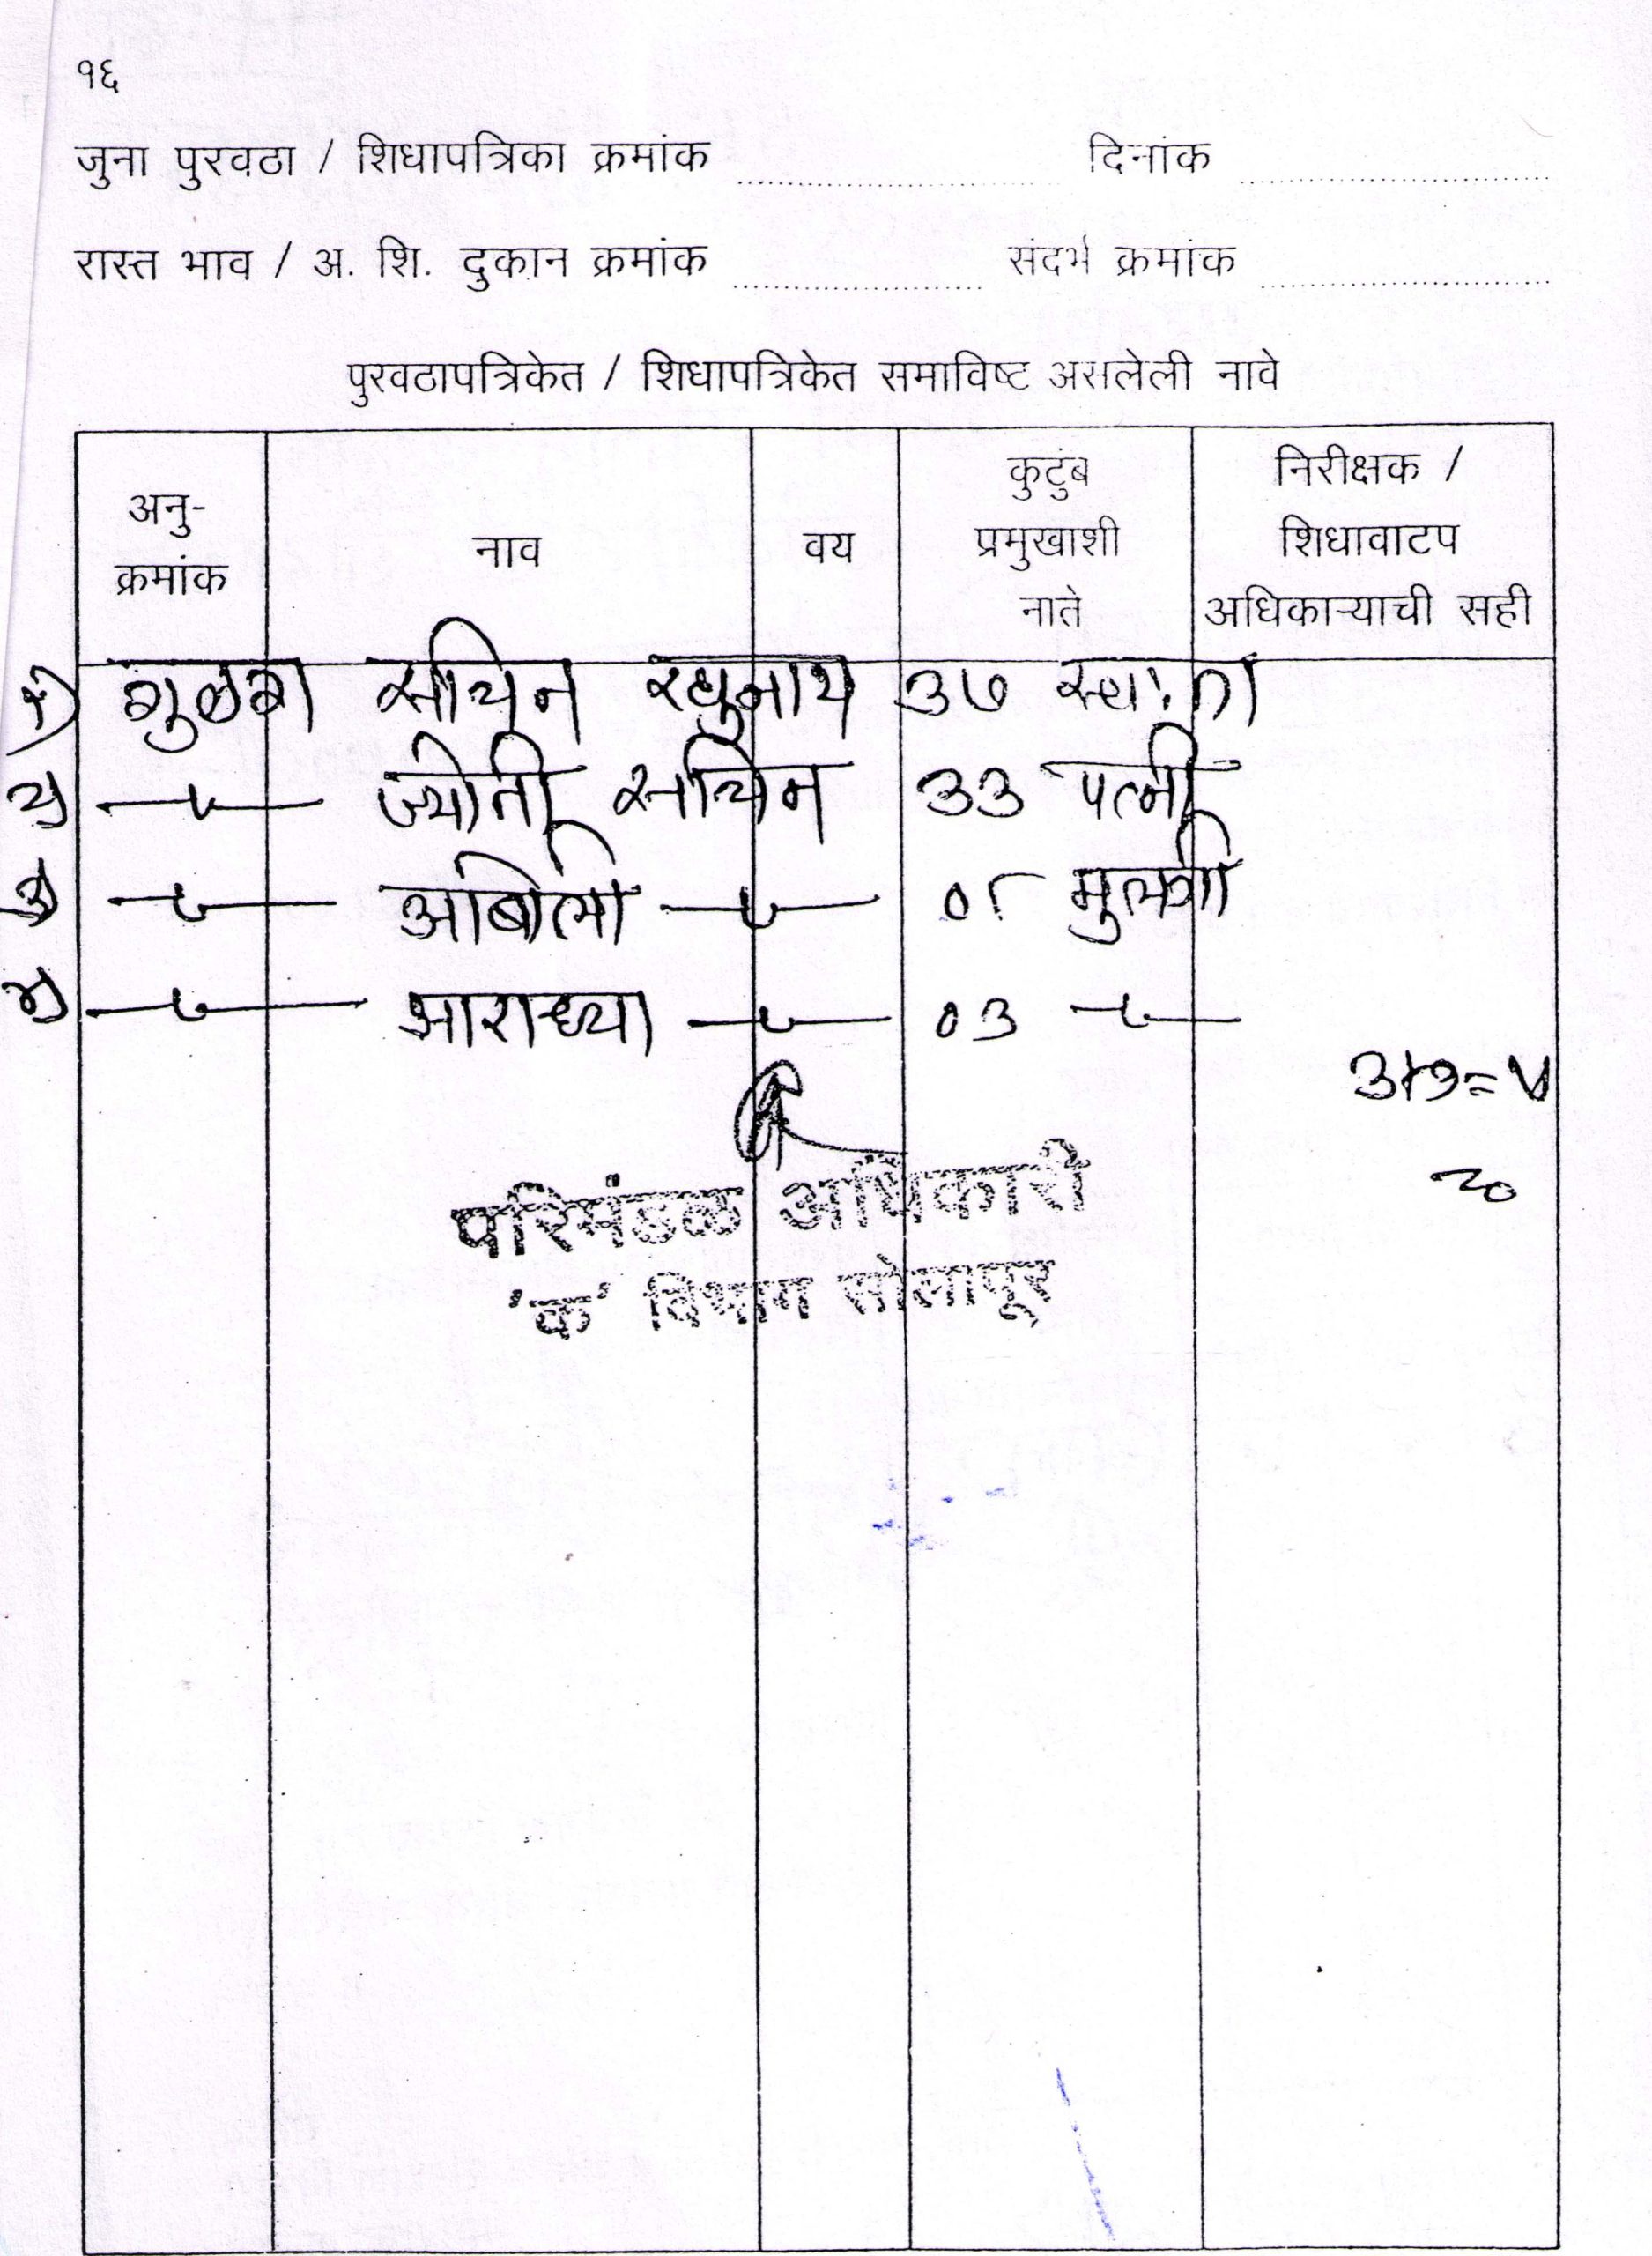 १६
जुना पुरवठा / शिधापत्रिका क्रमांक दिनांक
रास्त भाव / अ. शि. दुकान क्रमांक संदर्भ क्रमांक
पुरवठापत्रिकेत / शिधापत्रिकेत समाविष्ट असलेली नावे
अनु-
क्रमांक
नाव
वय
कुटुंब
प्रमुखाशी
नाते
निरीक्षक /
शिधावाटप
अधिकाऱ्याची सही
१) सचिन रघुनाथ ३७
२) ज्योती सचिन ३३ पत्नी
३) मुलगी
४) आराध्या ०३
३+१=४
२०
परिमंडळ अधिकारी
'क' विभाग सोलापूर